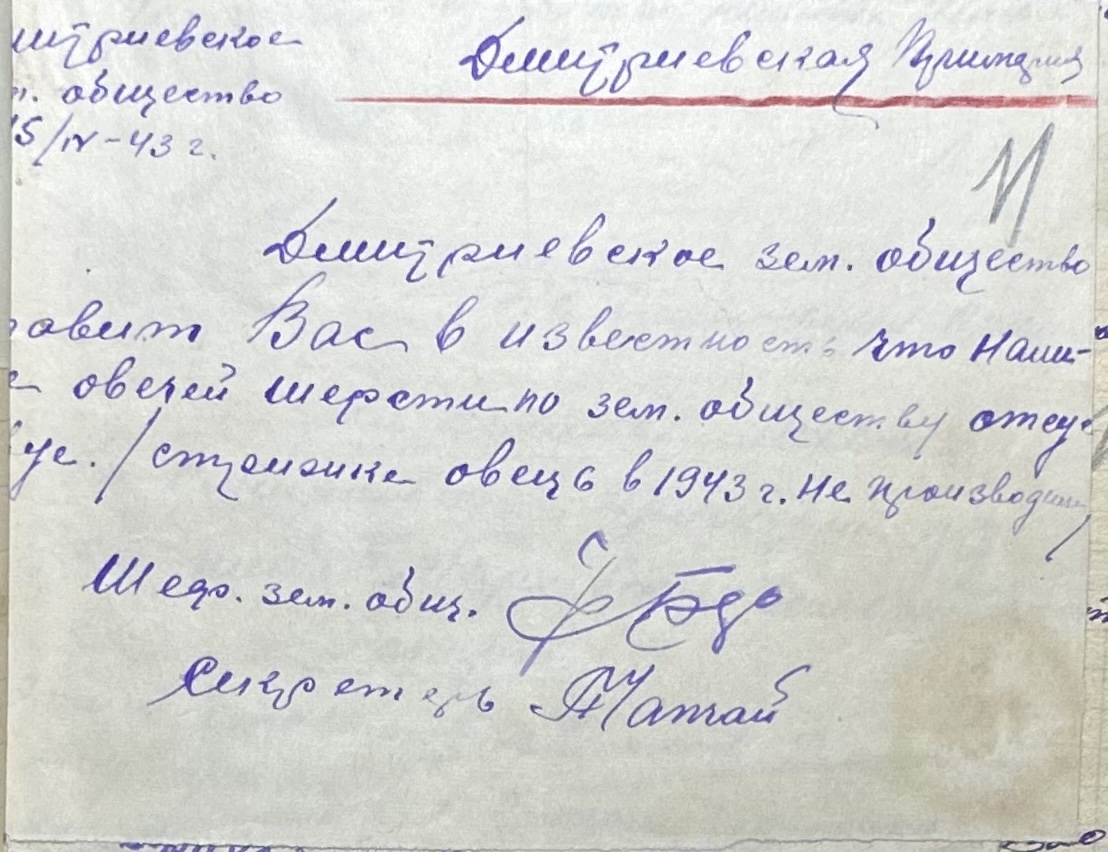 митриевское
. общество
15/IV-43 г.
Дмитриевская Примария
Дмитриевское зем. общество
авит Вас в известность что нали-
е овечей шерсти по зем. обществу отсу-
ує. / стрижка овець в 1943 г. не производил
Шеф. зем. общ.
Секретарь